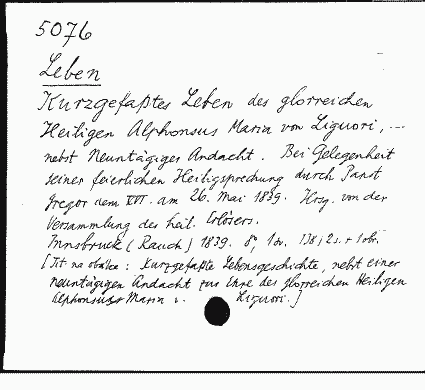 5076
Leben
Kurzgefaßtes Leben des glorreichen
Heiligen Alphonsus Maria von Liguori, ...
nebst Neuntägiger Andacht. Bei Gelegenheit
seiner feierlichen Heiligsprechung durch Papst
Gregor dem XVI. am 26. Mai 1839. Hrsg. von der
Versammlung des heil. Erlösers.
Innsbruck (Rauch) 1839. 8°,
[Tit. na obálce: Kurzgefaßte Lebensgeschichte, nebst einer
neuntägigen Andacht zur Ehre des glorreichen Heiligen
Alphonsus Maria v. Liguori.]